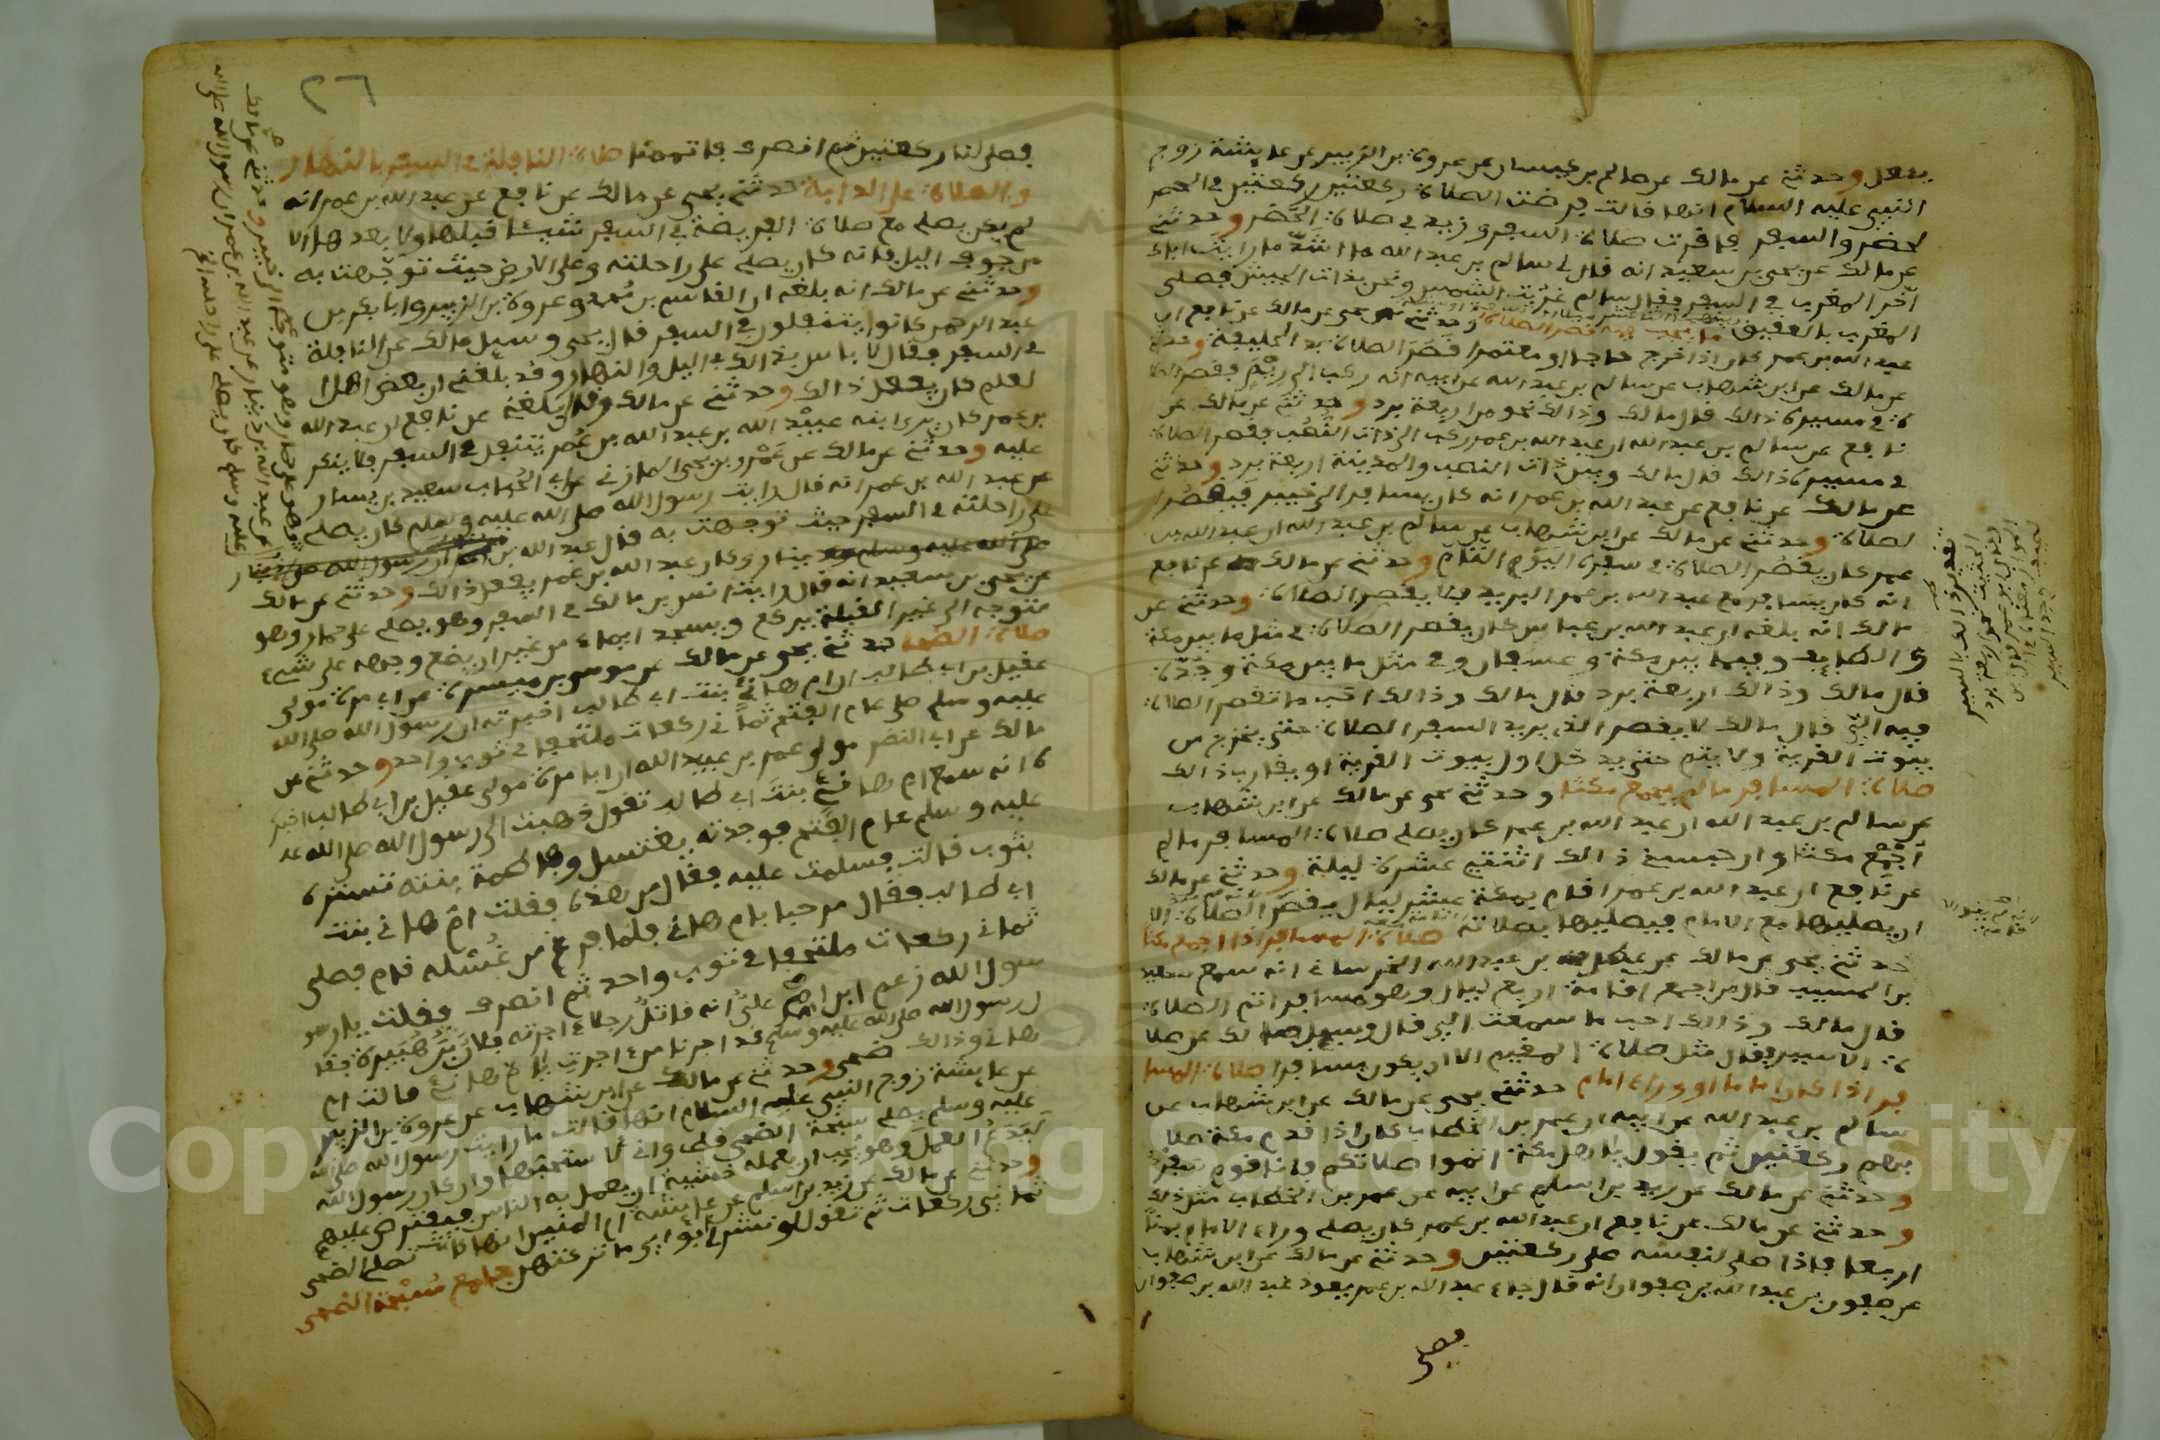 يفعل وحدثني عن مالك عن صالم بن كيسان عن عروة بن الزبير عن عايشة زوج
النبي عليه السلام انها قالت فرضت الصلاة ركعتين ركعتين في الحضر
لحضر والسفر فاقرت صلاة السفر وزيد في صلاة الحضر وحدثني
عن مالك عن يحي بن سعيد انه قال لسالم بن عبد الله ما اشد ما رايت اباك
اخر المغرب في السفر فقال سالم غربت الشمس ونحن بذات الجيش فصلى
المغرب بالعقيق ما يجب فيه قصر الصلاة وحدثني يحي عن مالك عن نافع ان
عبد الله بن عمر كان اذا خرج حاجا او معتمرا قصر الصلاة بذ الحليفة وحدثني
عن مالك عن ابن شهاب عن سالم بن عبد الله عن ابيه انه ركب الى ريم فقصر الصلا
ة في مسيره ذالك قال مالك وذالك نحو من اربعة برد وحدثني عن مالك عن
نافع عن سالم بن عبد الله ان عبد الله بن عمر ركب الى ذات النصب فقصر الصلاة
في مسيره ذالك قال مالك وبين ذات النصب والمدينة اربعة برد وحدثني
عن مالك عن نافع عن عبد الله بن عمر انه كان يسافر الى خيبر فيقصر ا
لصلاة وحدثني عن مالك عن ابن شهاب عن سالم بن عبد الله ان عبد الله بن
عمر كان يقصر الصلاة في سفره اليوم التام وحدثني عن مالك عن نافع
انه كان يسافر مع عبد الله بن عمر البريد فلا يقصر الصلاة وحدثني عن
مالك انه بلغه ان عبد الله بن عباس كان يقصر الصلاة في مثل ما بين مكة
و الطايف وفيما بين مكة وعسفان وفي مثل ما بين مكة وجدة
قال مالك وذالك اربعة برد قال مالك وذالك احب ما تقصر الصلاة
فيه الي قال مالك لا يقصر الذي يريد السفر الصلاة حتى يخرج من
بيوت القرية ولا يتم حتى يدخل اول بيوت القرية او يقارب ذالك
صلاة المسافر ما لم يجمع مكثا وحدثني يحي عن مالك عن ابن شهاب
عن سالم بن عبد الله ان عبد الله بن عمر كان يصلي صلاة المسافر ما لم
اجمع مكثا وان حبسني ذالك اثنتي عشرة ليلة وحدثني عن مالك
عن نافع ان عبد الله بن عمر اقام بمكة عشر ليال يقصر الصلاة الا
ان يصليها مع الامام فيصليها بصلاته صلاة المسافر اذا اجمع مكثا
حدثني يحي عن مالك عن عطاء بن عبد الله الخرساني انه سمع سعيد
بن المسيب قال من اجمع اقامة اربع ليال وهو مسافر اتم الصلاة
قال مالك وذالك احب ما سمعت الي قال وسيل مالك عن صلا
ة الاسير فقال مثل صلاة المقيم الا ان يكون مسافرا صلاة المسا
فر اذا كان اماما او وراء امام حدثني يحي عن مالك عن ابن شهاب عن
سالم بن عبد الله عن ابيه ان عمر بن الخطاب كان اذا قدم مكة صلا
بهم ركعتين ثم يقول يا اهل مكة اتموا صلاتكم فانا قوم سفر
وحدثني عن مالك عن زيد بن اسلم عن ابيه عن عمر بن الخطاب مثل ذلك
وحدثني عن مالك عن نافع ان عبد الله بن عمر كان يصلي وراء الامام بمنا
اربعا فاذا صلى لنفسه صلى ركعتين وحدثني عن مالك عن ابن شهاب
عن صفوان بن عبد الله بن صفوان انه قال جاء عبد الله بن عمر يعود عبد الله بن صفوان
فصلى
٢٦
فصلى لنا ركعتين ثم انصرف فاتممنا صلاة النافلة في السفر بالنهار
والصلاة على الدابة حدثني يحي عن مالك عن نافع عن عبد الله بن عمر انه
لم يكن يصلي مع صلاة الفريضة في السفر شيئا قبلها ولا بعدها الا
من جوف اليل فانه كان يصلي على راحلته وعلى الارض حيث توجهت به
وحدثني عن مالك انه بلغه ان القاسم بن محمد وعروة بن الزبير وابا بكر بن
عبد الرحمن كانوا يتنفلون في السفر قال يحي وسيل مالك عن النافلة
في السفر فقال لا باس بذالك في اليل والنهار وقد بلغني ان بعض اهل ا
لعلم كان يفعل ذالك وحدثني عن مالك وقال بلغني عن نافع ان عبد الله
بن عمر كان يرى ابنه عبيد الله بن عبد الله بن عمر يتنفل في السفر فلا ينكر
عليه وحدثني عن مالك عن عمرو بن يحي المازني عن ابي الحباب سعيد بن يسار
عن عبد الله بن عمر انه قال رايت رسول الله صلى الله عليه وسلم كان يصلي
على راحلته في السفر حيث توجهت به قال عبد الله بن
دينار وكان عبد الله بن عمر يفعل ذالك وحدثني عن مالك
عن يحي بن سعيد انه قال رايت انس بن مالك في السفر وهو يصلي على حمار وهو
متوجه الى غير القبلة يركع ويسجد ايماء من غير ان يضع وجهه على شيء
صلاة الضحى حدثني يحي عن مالك عن موسى بن ميسرة عن ابي مرة مولى
عقيل بن ابي طالب ان ام هاني بنت ابي طالب اخبرته ان رسول الله صلى الله
عليه وسلم صلى عام الفتح ثماني ركعات ملتحفا في ثوب واحد وحدثني عن
مالك عن ابي النضر مولى عمر بن عبيد الله ان ابا مرة مولى عقيل بن ابي طالب اخبر
ه انه سمع ام هاني بنت ابي طالب تقول ذهبت الى رسول الله صلى الله
عليه وسلم عام الفتح فوجدته يغتسل وفاطمة بنته تستره
بثوب قالت فسلمت عليه فقال من هذه فقلت ام هاني بنت
ابي طالب فقال مرحبا بام هاني فلما فرغ من غسله قام فصلى
ثماني ركعات ملتحفا في ثوب واحد ثم انصرف فقلت يا ر
سول الله زعم ابن امي علي انه قاتل رجلا اجرته فلان بن هبيرة فقا
ل رسول الله صلى الله عليه وسلم قد اجرنا من اجرت يا ام هاني قالت ام
هاني وذالك ضحى وحدثني عن مالك عن ابن شهاب عن عروة بن الزبير
عن عايشة زوج النبي عليه السلام انها قالت ما رايت رسول الله صلى الله
عليه وسلم يصلي سبحة الضحى قط واني لاستحبها وان كان رسول الله
ليدع العمل وهو يحب ان يعمله خشية ان يعمل به الناس فيفترض عليهم
وحدثني عن مالك عن زيد بن اسلم عن عايشة ام المومنين انها كانت تصلي الضحى
ثماني ركعات ثم تقول لو نشر لي ابواي ما تركتهن جامع سبحة الضحى
Copyright © King Saud University